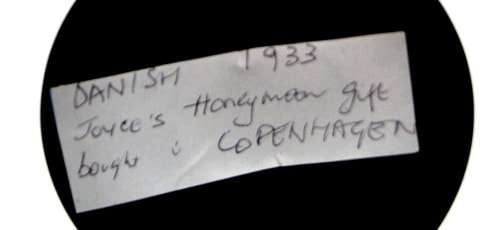 DANISH 1933
Joyce's Honeymoon gift
bought i COPENHAGEN